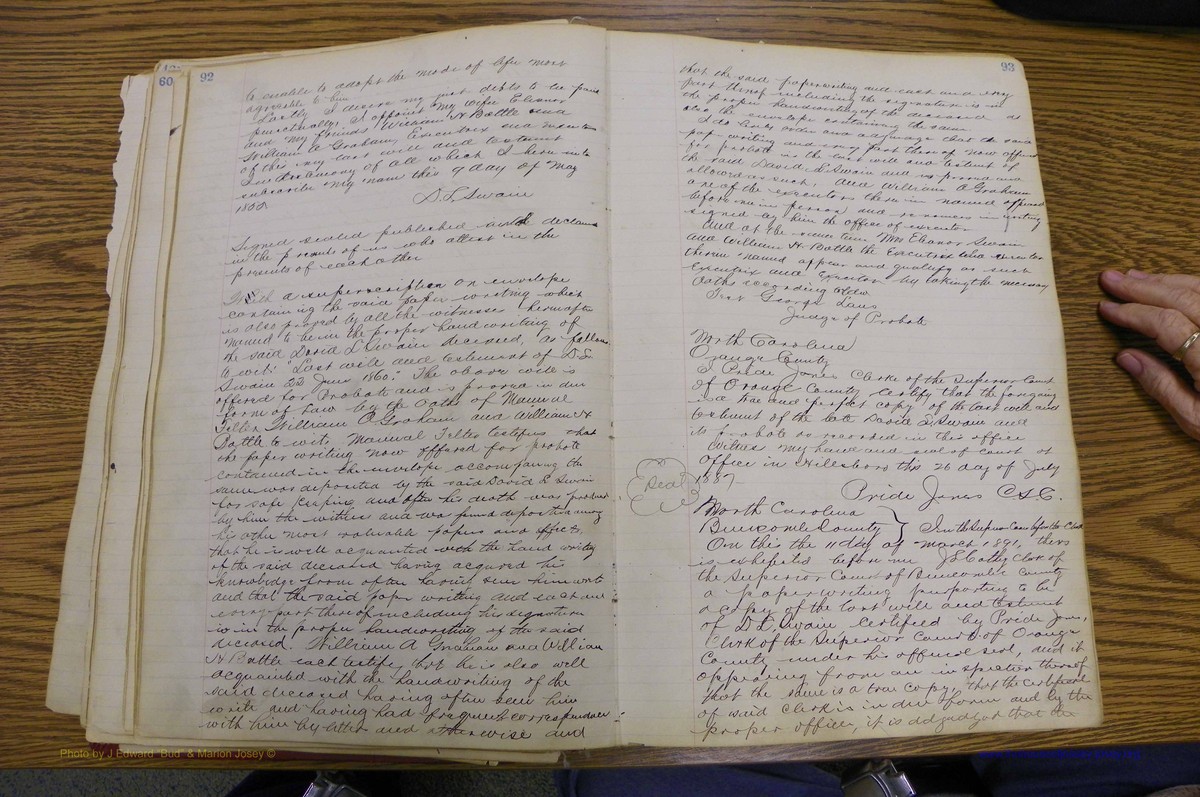 60
92
to enable to adopt the mode of life most
agreeable to him
Lastly I desire my just debts to be paid
punctually, I appoint my wife Eleanor
and my friends William H Battle and
William A Graham, Executrix and
of this my last will and testament
In testimony of all which I here unto
subscribe my name this 9 day of May
D. L. Swain
Signed sealed published and declared
in the presents of us who attest in the
presents of each other
With a superscription on envelope
containing the said paper writing which
is also proved by all the witnesses hereafter
named to be in the proper handwriting of
the said David L Swain deceased, as follows
to wit: "Last will and testament of D. L.
Swain 22 June 1860." The above will is
offered for Probate and is proved in due
form of Law by the Oaths of Manuel
Fetter, William A Graham and William H
Battle to wit, Manuel Fetter testifies that
the paper writing now offered for probate
contained in the envelope accompanying the
same was deposited by the said David L Swain
for safe keeping and after his death was
by him the witness and was found deposited among
his other most valuable papers and effects,
that he is well acquanted with the hand writing
of the said deceased having acquired his
knowledge from often having seen him write
and that the said paper writing and each and
every part there of including his signature
is in the proper handwriting of the said
deceased. William A Graham and William
H Battle each testify that he is also well
acquanted with the handwriting of the
said deceased having often seen him
write and having had frequent correspondence
with him by letter and otherwise and
93
that the said paperwriting and each and every
part thereof including the signature is in
the proper handwriting of the deceased as
also the envelope containing the same
I do hereby order and adjudge that the said
paper writing and every part thereof now offered
for probate is the last will and testament of
the said David L Swain and is proved and
allowed as such, and William A Graham
one of the executors there in named appeared
before me in person and renounces in writing
signed by him the office of executor
And at the same time Mrs Eleanor Swain
and William H Battle the Executrix and executor
therein named appear and qualify as such
Executrix and Executor by taking the necessary
Oaths according to law
George Laws
Judge of Probate
North Carolina
Orange County
I Pride Jones Clerk of the Superior Court
of Orange County Certify that the forgoing
is a true and perfect copy of the last will and
testament of the late David L Swain and
its probate as recorded in this office
Witness my hand and seal of Court at
Office in Hillsboro this 26 day of July
188
Seal
Pride Jones C S C.
North Carolina
Buncombe County } In the Superior Court before the Clerk
On this the 11 day of March 1891, there
is exhibited before me J E Cathey Clerk of
the Superior Court of Buncombe County
a paper writing purporting to be
a copy of the last will and testament
of D L Swain Certified by Pride Jones,
Clerk of the Superior Court of Orange
County under his official seal, and it
appearing from an inspection thereof
that the same is a true copy, that the certificate
of said Clerk is in due form and by the
proper officer, it is adjudged that the
Photo by J Edward "Bud" & Marion Josey ©